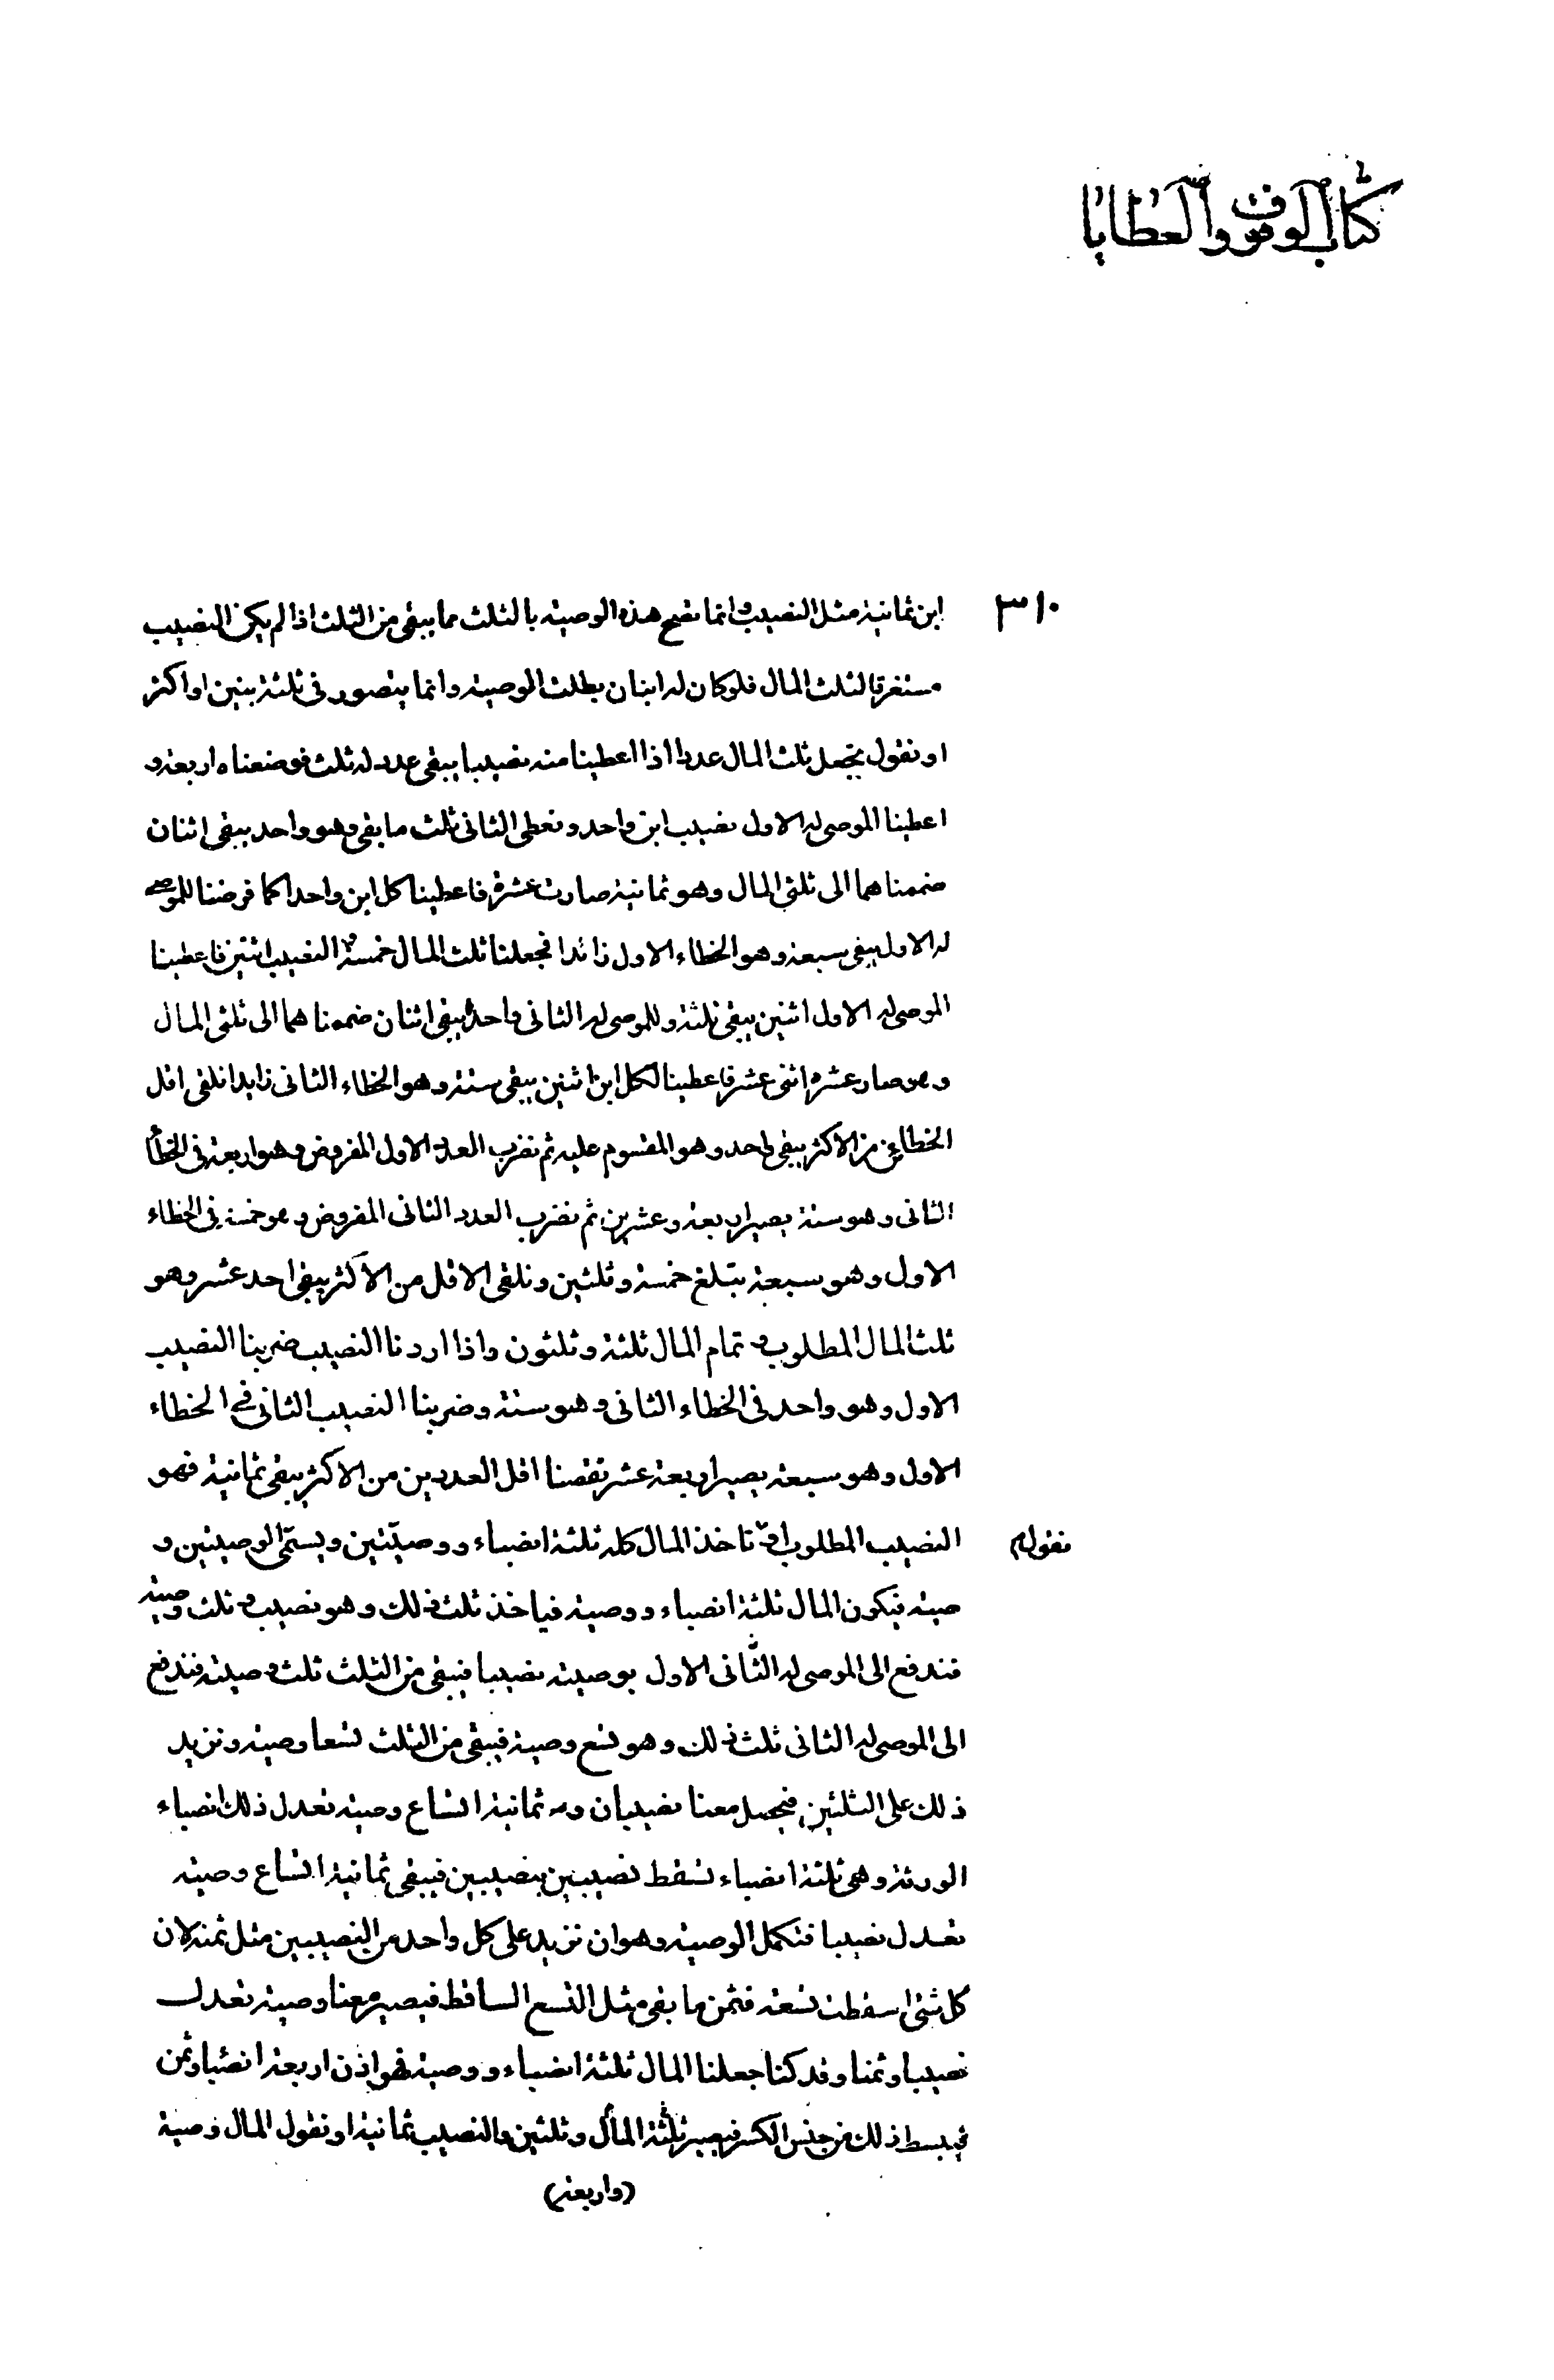 كتاب الوقوف والعطايا
٣١٠
ابن ثمانية مثل النصيب وانما تصح هذه الوصية بالثلث مما يبقى من الثلث اذا لم يكن النصيب
مستغرقا لثلث المال فلو كان له ابنان بطلت الوصية وانما يتصور في ثلثة بنين او اكثر
او نقول نجعل ثلث المال عددا اذا اعطينا منه نصيبا يبقى عدد له ثلث فوضعناه اربعة و
اعطينا الموصى له الاول نصيب ابن واحد ونعطى الثانى ثلث ما بقى وهو واحد يبقى اثنان
ضممناهما الى ثلثى المال وهو ثمانية صارت عشرة فاعطينا كل ابن واحدا كما فرضنا للموصى
له الاول يبقى سبعة وهو الخطاء الاول زائدا فجعلنا ثلث المال خمسة و النصيب اثنين فاعطينا
الموصى له الاول اثنين يبقى ثلثة وللموصى له الثانى واحدا يبقى اثنان ضممناهما الى ثلثى المال
وهو صار عشرة اثنى عشر فاعطينا لكل ابن اثنين يبقى ستة وهو الخطاء الثانى زايدا نلقى اقل
الخطائين من الاكثر يبقى واحد وهو المقسوم عليه ثم نضرب العدد الاول المفروض وهو اربعة فى الخطأ
الثانى وهو ستة يصير اربعة وعشرين ثم نضرب العدد الثانى المفروض وهو خمسة فى الخطاء
الاول وهو سبعة يبلغ خمسة وثلثين ونلقى الاقل من الاكثر يبقى احد عشر وهو
ثلث المال المطلوب و تمام المال ثلثة وثلثون واذا اردنا النصيب ضربنا النصيب
الاول وهو واحد فى الخطاء الثانى وهو ستة وضربنا النصيب الثانى فى الخطاء
الاول وهو سبعة يصير اربعة عشر نقصنا اقل العددين من الاكثر يبقى ثمانية فهو
النصيب المطلوب او تاخذ المال كله ثلثة انصباء ووصيتين ويسمى الوصيتين و
نقول م
صية فيكون المال ثلثة انصباء ووصية فياخذ ثلث ذلك وهو نصيب و ثلث وصية
فندفع الى الموصى له الثانى الاول بوصيته نصيبا فيبقى من الثلث ثلث وصية فندفع
الى الموصى له الثانى ثلث ذلك وهو تسع وصية فيبقى من الثلث تسعا وصية ونزيد
ذلك على الثلثين فيحصل معنا نصيبان و ثمانية اتساع وصية تعدل ذلك انصباء
الورثة وهى ثلثة انصباء نسقط نصيبين بنصيبين فيبقى ثمانية اتساع وصية
تعدل نصيبا فتكمل الوصية وهو ان نزيد على كل واحد من النصيبين مثل ثمنه لان
كل شئ اسقطت تسعه فثمن ما بقى مثل التسع الساقط فيصير معنا وصية تعدل
نصيبا وثمنا وقد كنا جعلنا المال ثلثة انصباء ووصية فهو اذن اربعة انصبا وثمن
فيبسط ذلك من جنس الكسر فيصير ثلثة المال وثلثين والنصيب ثمانية او نقول المال وصية
(واربعة)